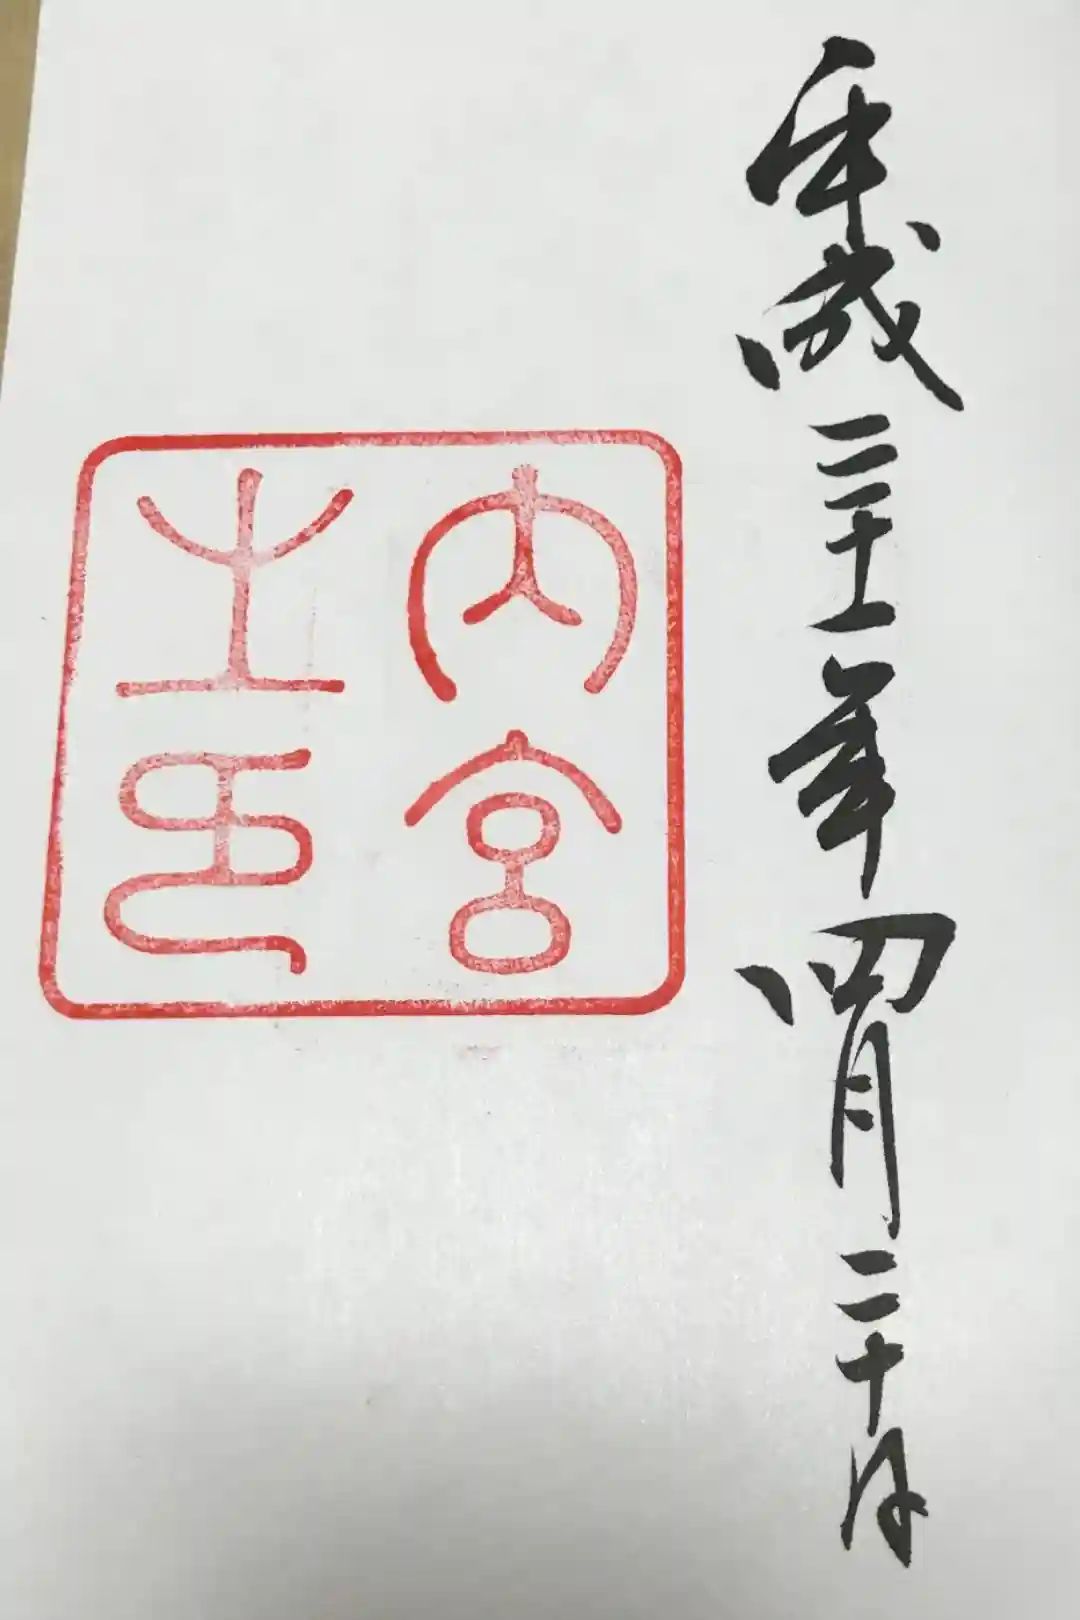 平成三十一年四月二十日
内宮
之印